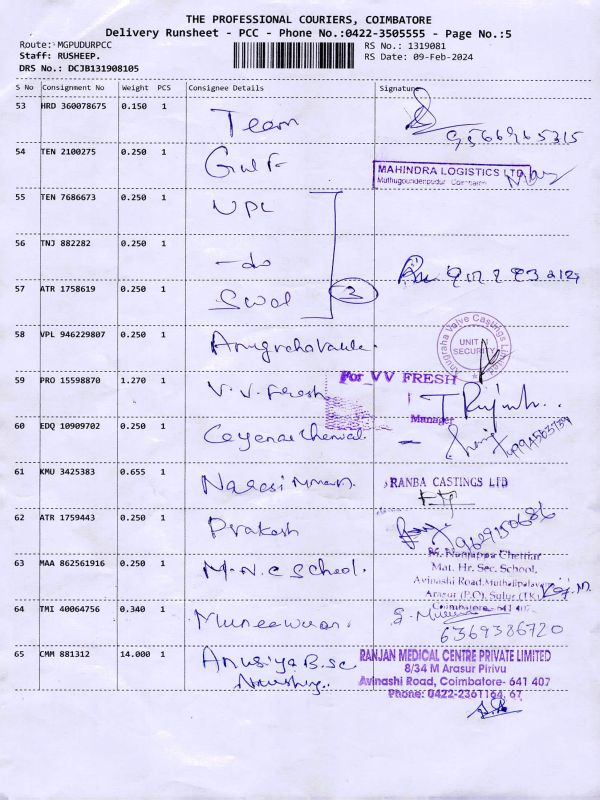 THE PROFESSIONAL COURIERS, COIMBATORE
Delivery Runsheet - PCC - Phone No.:0422-3505555 - Page No.:5
Route: MGPUDURPCC
RS No.: 1319081
Staff: RUSHEEP.
RS Date: 09-Feb-2024
DRS No.: DCJB131908105
S No Consignment No Weight PCS Consignee Details Signature
53 HRD 360078675 0.150 1 Team 9566965315
54 TEN 2100275 0.250 1 Gulf
MAHINDRA LOGISTICS LTD
Muthugoundenpudur Coimbatore
55 TEN 7686673 0.250 1 UPL
56 TNJ 882282 0.250 1 - do
57 ATR 1758619 0.250 1 Swal 3
58 VPL 946229807 0.250 1 Anugrahavalve.
Anugraha Valve Castings Limited
UNIT
SECURITY
59 PRO 15598870 1.270 1 V.V. Fresh
For VV FRESH
Manager
60 EDQ 10909702 0.250 1
61 KMU 3425383 0.655 1 Narasimman.
RANBA CASTINGS LTD
62 ATR 1759443 0.250 1 Prakash 9629150686
63 MAA 862561916 0.250 1 M.N.C School.
M. Nanjappa Chettiar
Mat. Hr. Sec. School,
Avinashi Road, Muthalipalayam
Arasur (P.O), Sulur (TK)
Coimbatore- 641 407
64 TMI 40064756 0.340 1 Muneeswaran.
6369386720
65 CMM 881312 14.000 1 Anusiya B.sc
Nursing.
RANJAN MEDICAL CENTRE PRIVATE LIMITED
8/34 M Arasur Pirivu
Avinashi Road, Coimbatore- 641 407
Phone: 0422-2361164, 67